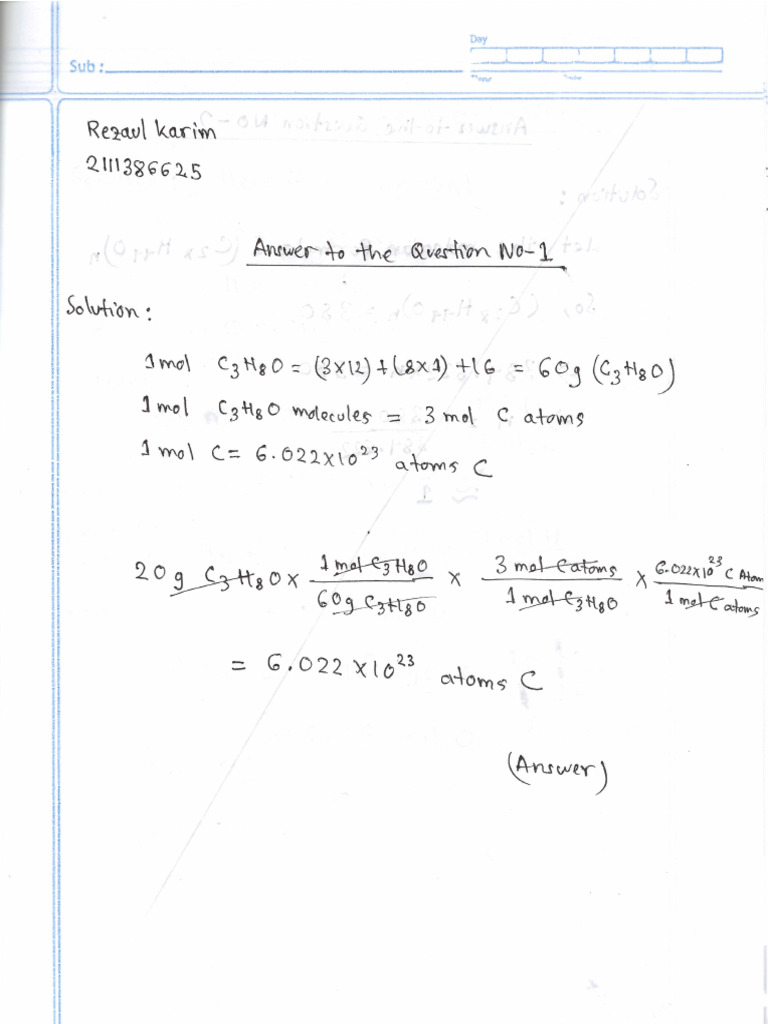 Day
Sub :
Rezaul Karim
2111386625
Answer to the Question No-1
Solution :
1 mol C3H8O = (3×12) + (8×1) + 16 = 60g (C3H8O)
1 mol C3H8O molecules = 3 mol C atoms
1 mol C = 6.022×10^23 atoms C
20 g C3H8O × 1 mol C3H8O / 60g C3H8O × 3 mol C atoms / 1 mol C3H8O × 6.022×10^23 C Atom / 1 mol C atoms
= 6.022 × 10^23 atoms C
(Answer)